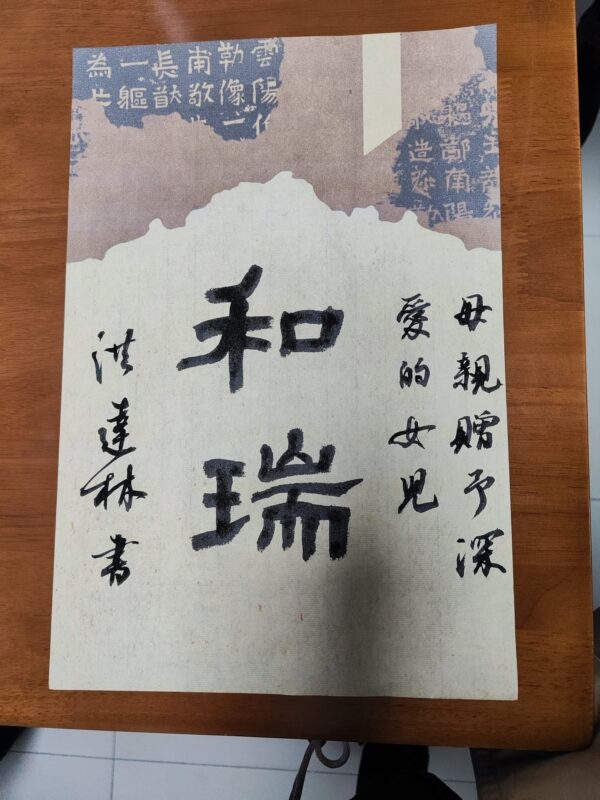 母親贈予深
愛的女兒
和瑞
洪達林書
南陽
造
雲陽
勒像一
南敬
長
一軀
為